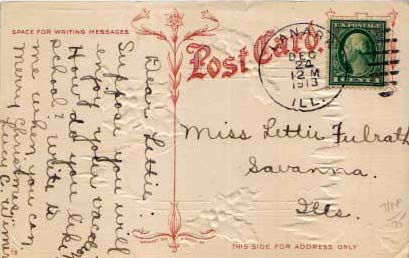 SPACE FOR WRITING MESSAGES
Dear Lettie:
Suppose you will
enjoy your vaca
How do you like
school? write to
me when you can,
Merry Christmas
Lucy C.
Post Card.
LANARK
DEC
24
12 M
1913
ILL.
Miss Lettie Fulrath
Savanna.
Ills.
THIS SIDE FOR ADDRESS ONLY